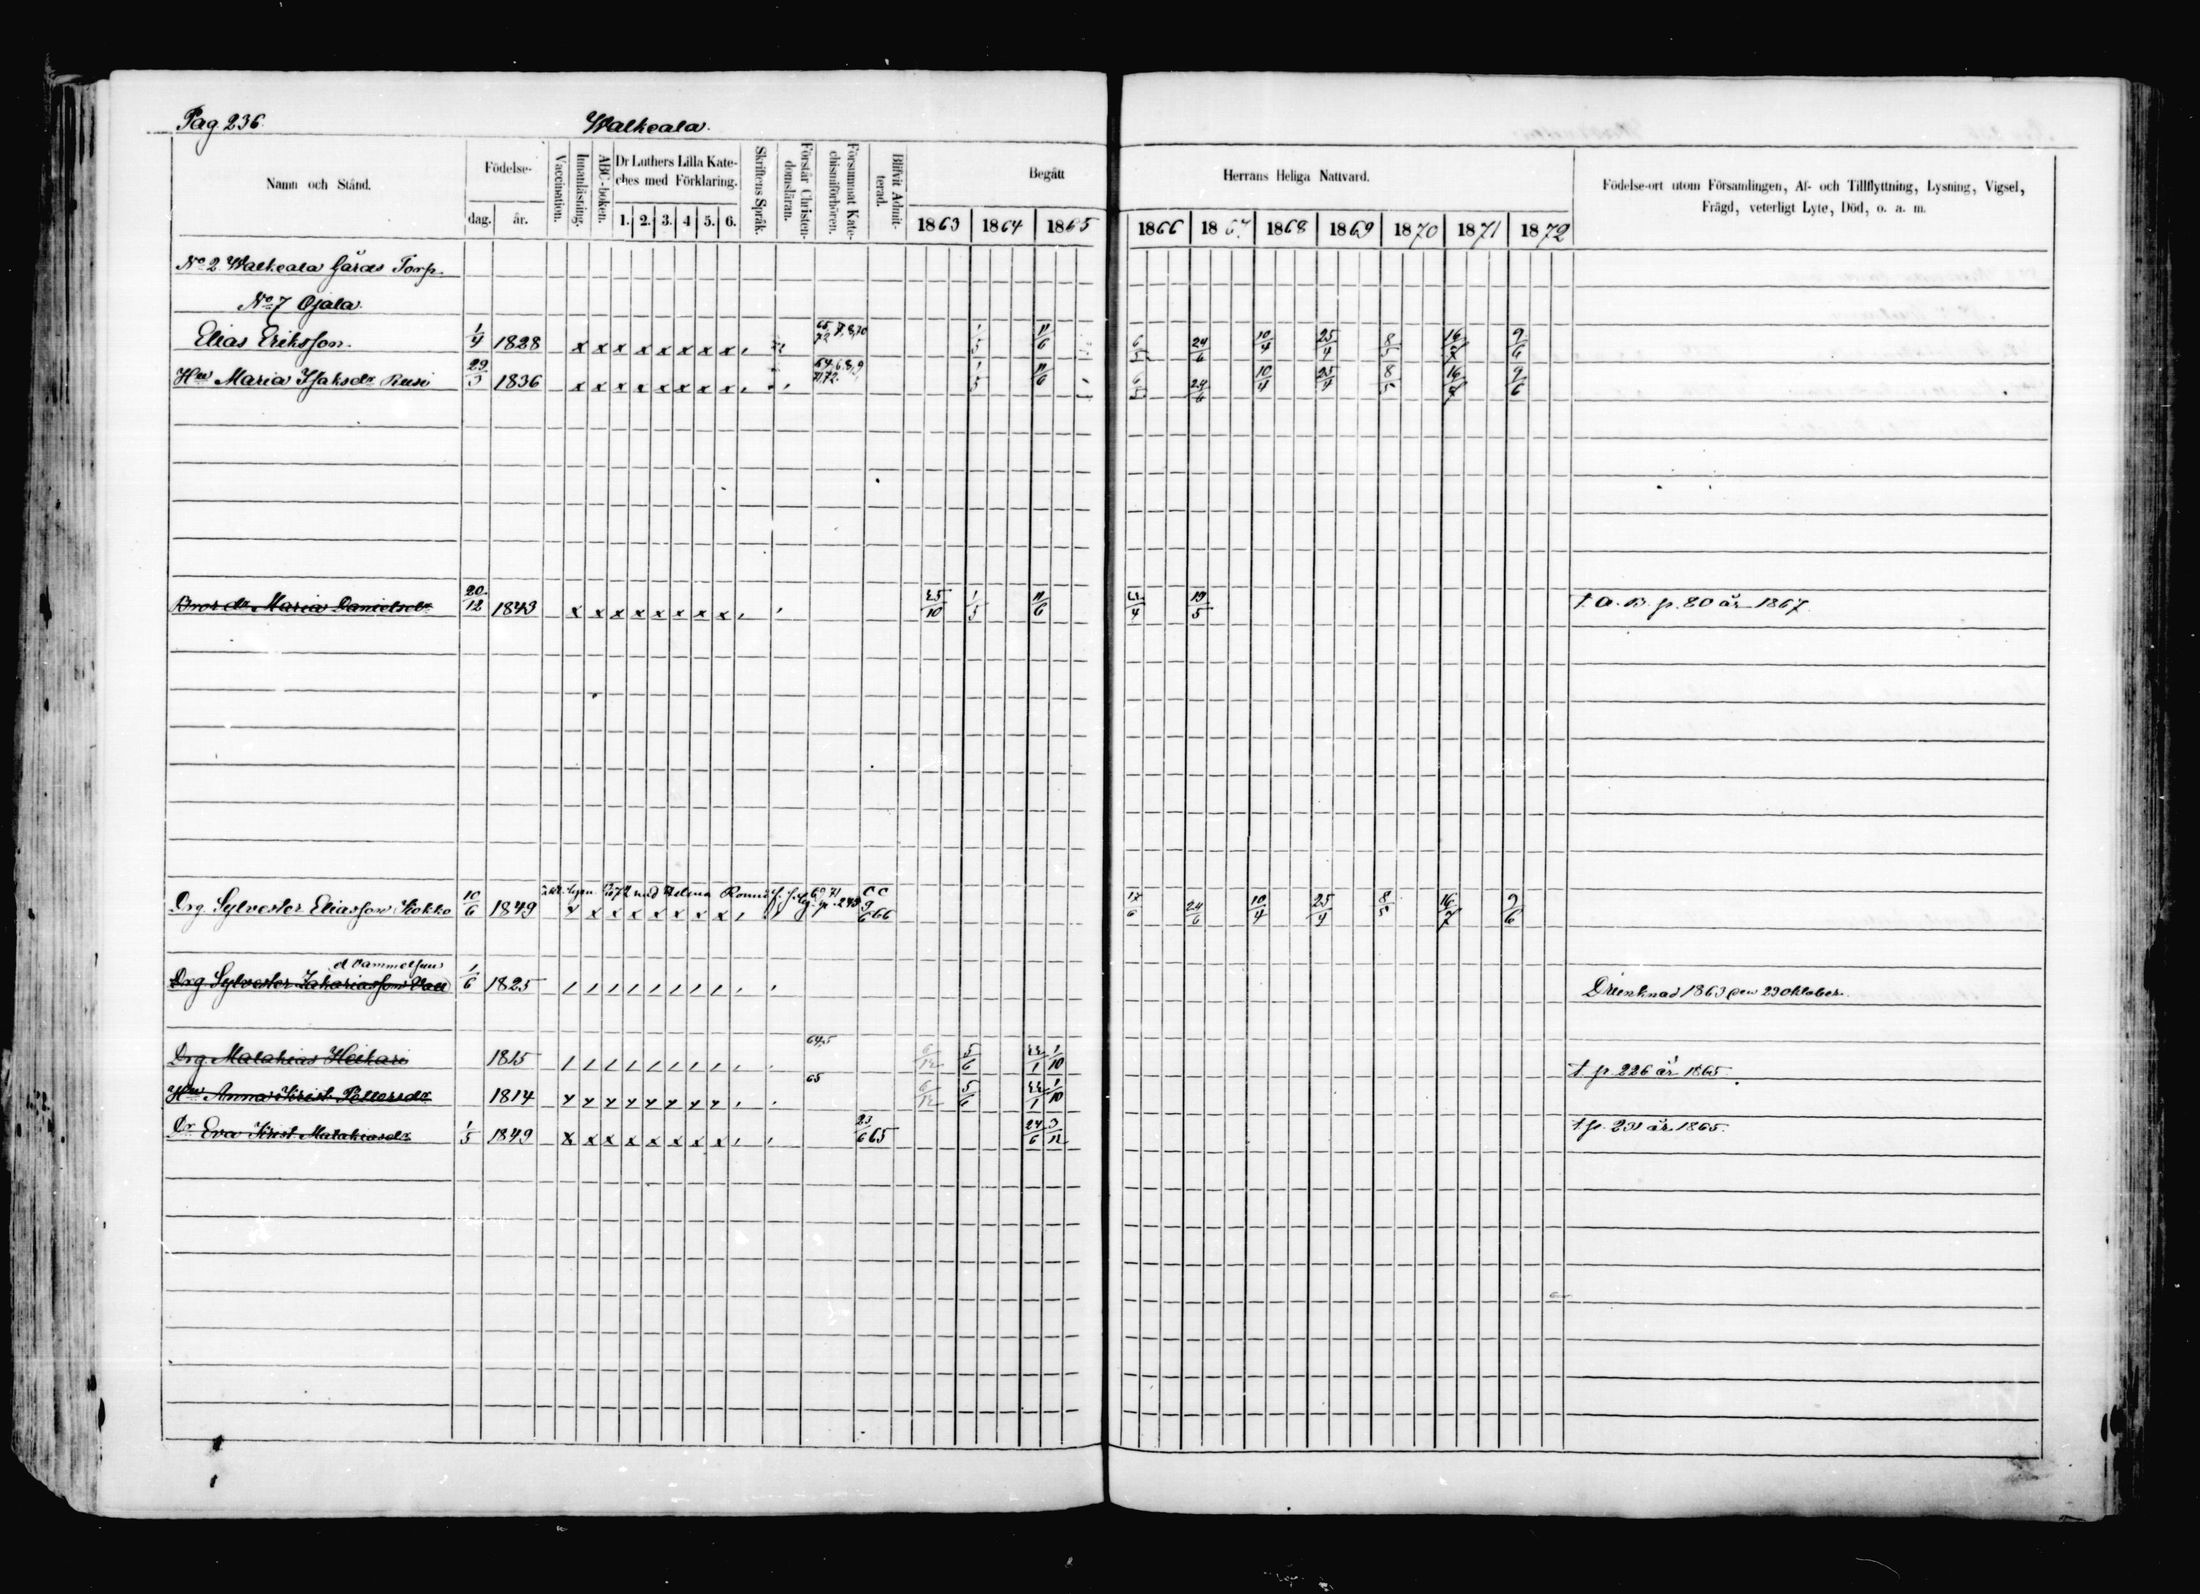 Pag. 236. Walkeala.
Namn och Stånd. Födelse- dag. år. Vaccination. Innanläsning. ABC-boken. Dr Luthers Lilla Kateches med Förklaring. 1. 2. 3. 4 5. 6. Skriftens Språk. Förstår Christendomsläran. Försummat Katechismiförhören. Blifvit Admitterad. Begått Herrans Heliga Nattvard. 1863 1864 1865 1866 1867. 1868 1869 1870 1871 1872 Födelse-ort utom Församlingen, Af- och Tillflyttning, Lysning, Vigsel, Frägd, veterligt Lyte, Död, o. a. m.
No 2 Walkeala Gårds Torp.
No 7 Ojala.
Elias Eriksson. 1/4 1828 x x x x x x x x 1/5 11/6 6/5 24/6 10/4 25/4 8/5 16/7 9/6
Hu Maria Isaksdr Rusi 29/3 1836 x x x x x x x x 1/5 11/6 6/5 24/6 10/4 25/4 8/5 16/7 9/6
Brors dr Maria Danielsdr 20/12 1843 x x x x x x x x 25/10 1/5 11/6 19/5 t. a. B. p. 80 år 1867.
Drg. Sylvester Eliasson Kokko 10/6 1849 x x x x x x x x 9/6 66 17/6 24/6 10/4 25/4 8/5 16/7 9/6
Drg. Sylvester Zakariasson 1/6 1825 / / / / / / / / Drunknad 1863 den 29 Oktober.
Drg. Matahias Heikari 1815 / / / / / / / / 64,5 6/12 5/6 1/10 t. p. 226 år 1865.
Hu Anna Krist. Pettersdr 1814 65 6/12 5/6 1/10
Dr Eva Krist. Matahiasdr 1/5 1849 x x x x x x x x 23/6 65 24/6 3/12 t. p. 231 år 1865.